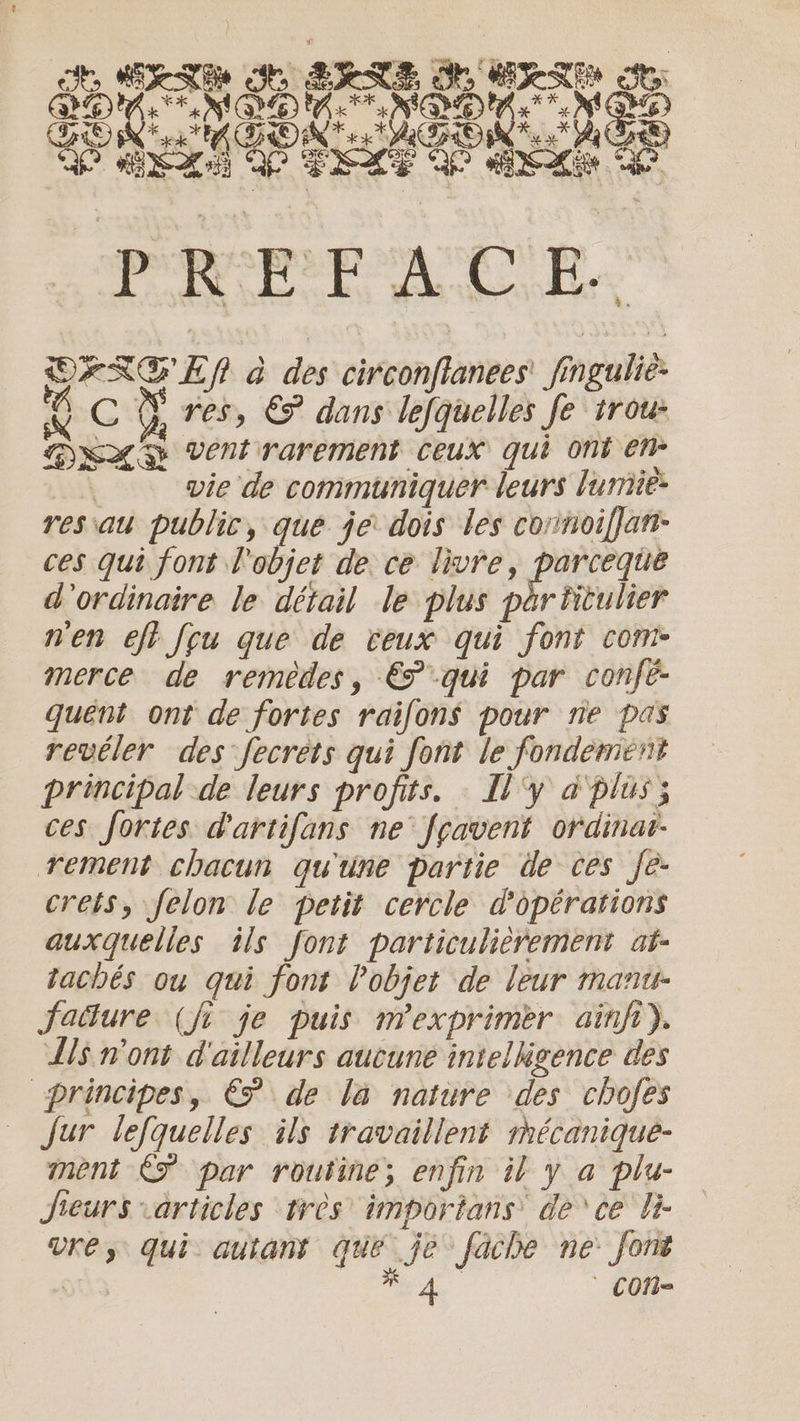 PREFACE.
C'Eſt à des circonſtanees ſinguliè-
res, & dans leſquelles ſe trou-
vent rarement ceux qui ont en-
vie de communiquer leurs lumiè-
res au public, que je dois les connoiſſan-
ces qui ſont l'objet de ce livre, parceque
d'ordinaire le détail le plus particulier
n'en eſt ſçu que de ceux qui font com-
merce de remèdes, & qui par conſé-
quent ont de fortes raiſons pour ne pas
revéler des ſecrets qui ſont le fondement
principal de leurs profits. Il y a plus;
ces ſortes d'artiſans ne ſçavent ordinai-
rement chacun qu'une partie de ces ſe-
crets, ſelon le petit cercle d'opérations
auxquelles ils ſont particulièrement at-
tachés ou qui font l'objet de leur manu-
facture (ſi je puis m'exprimer ainſi).
Ils n'ont d'ailleurs aucune intelligence des
principes, & de la nature des choſes
ſur leſquelles ils travaillent mécanique-
ment & par routine; enfin il y a plu-
ſieurs articles très importans de ce li-
vre, qui autant que je ſache ne ſont
* 4 con-